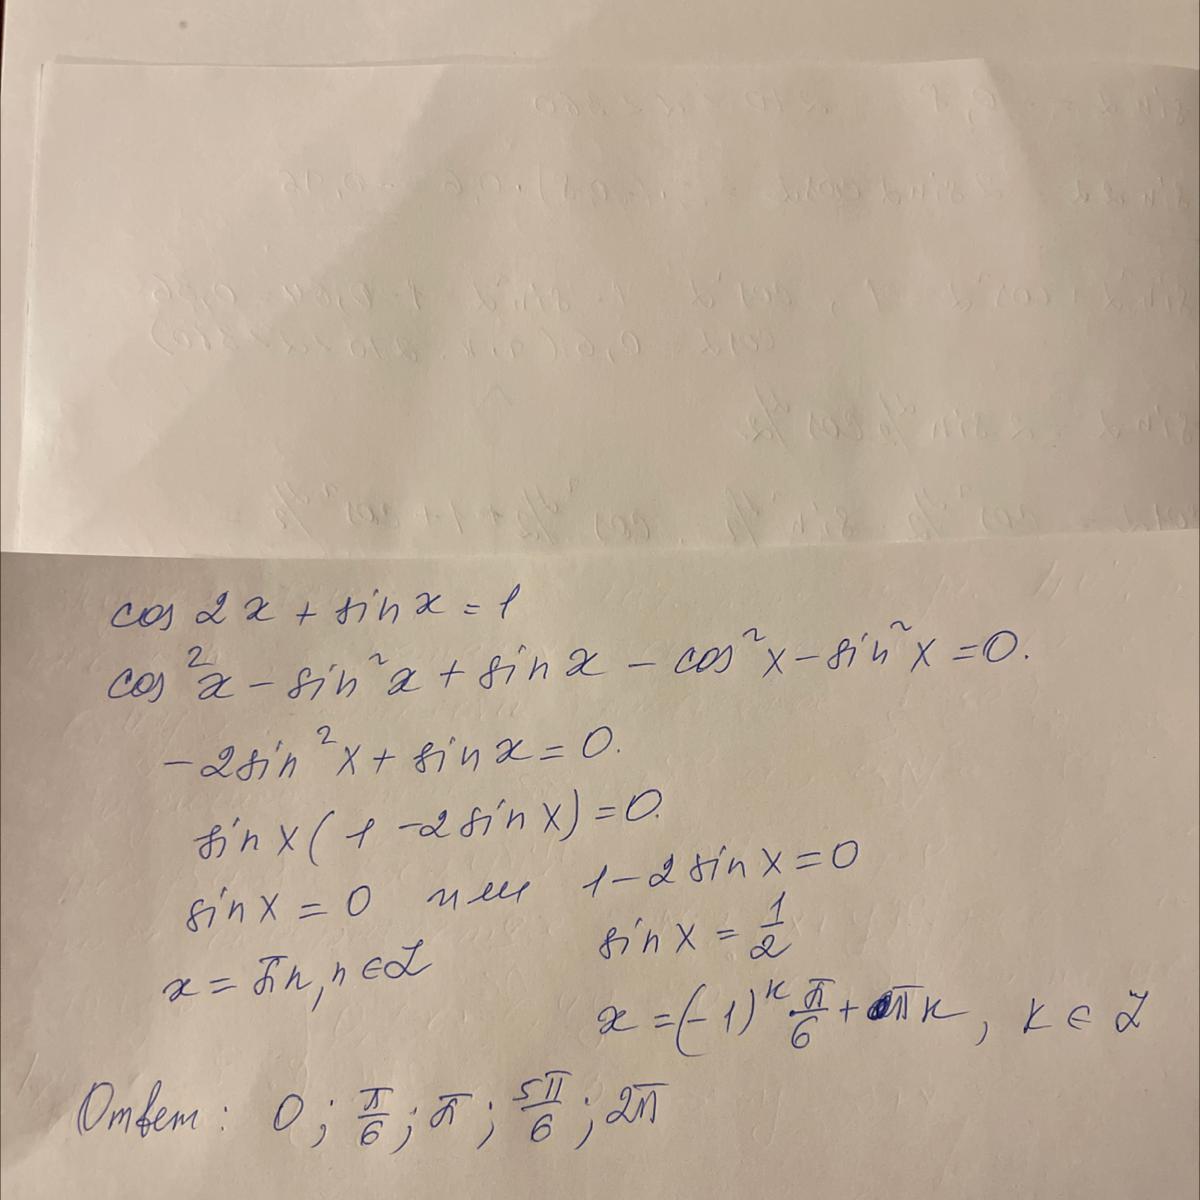 cos 2x + sin x = 1
cos²x - sin²x + sin x - cos²x - sin²x = 0.
-2sin²x + sin x = 0.
sin x (1 - 2 sin x) = 0.
sin x = 0 или 1 - 2 sin x = 0
sin x = 1/2
x = πn, n ∈ Z
x = (-1)ᵏ π/6 + πk, k ∈ Z
Ответ: 0; π/6; π; 5π/6; 2π